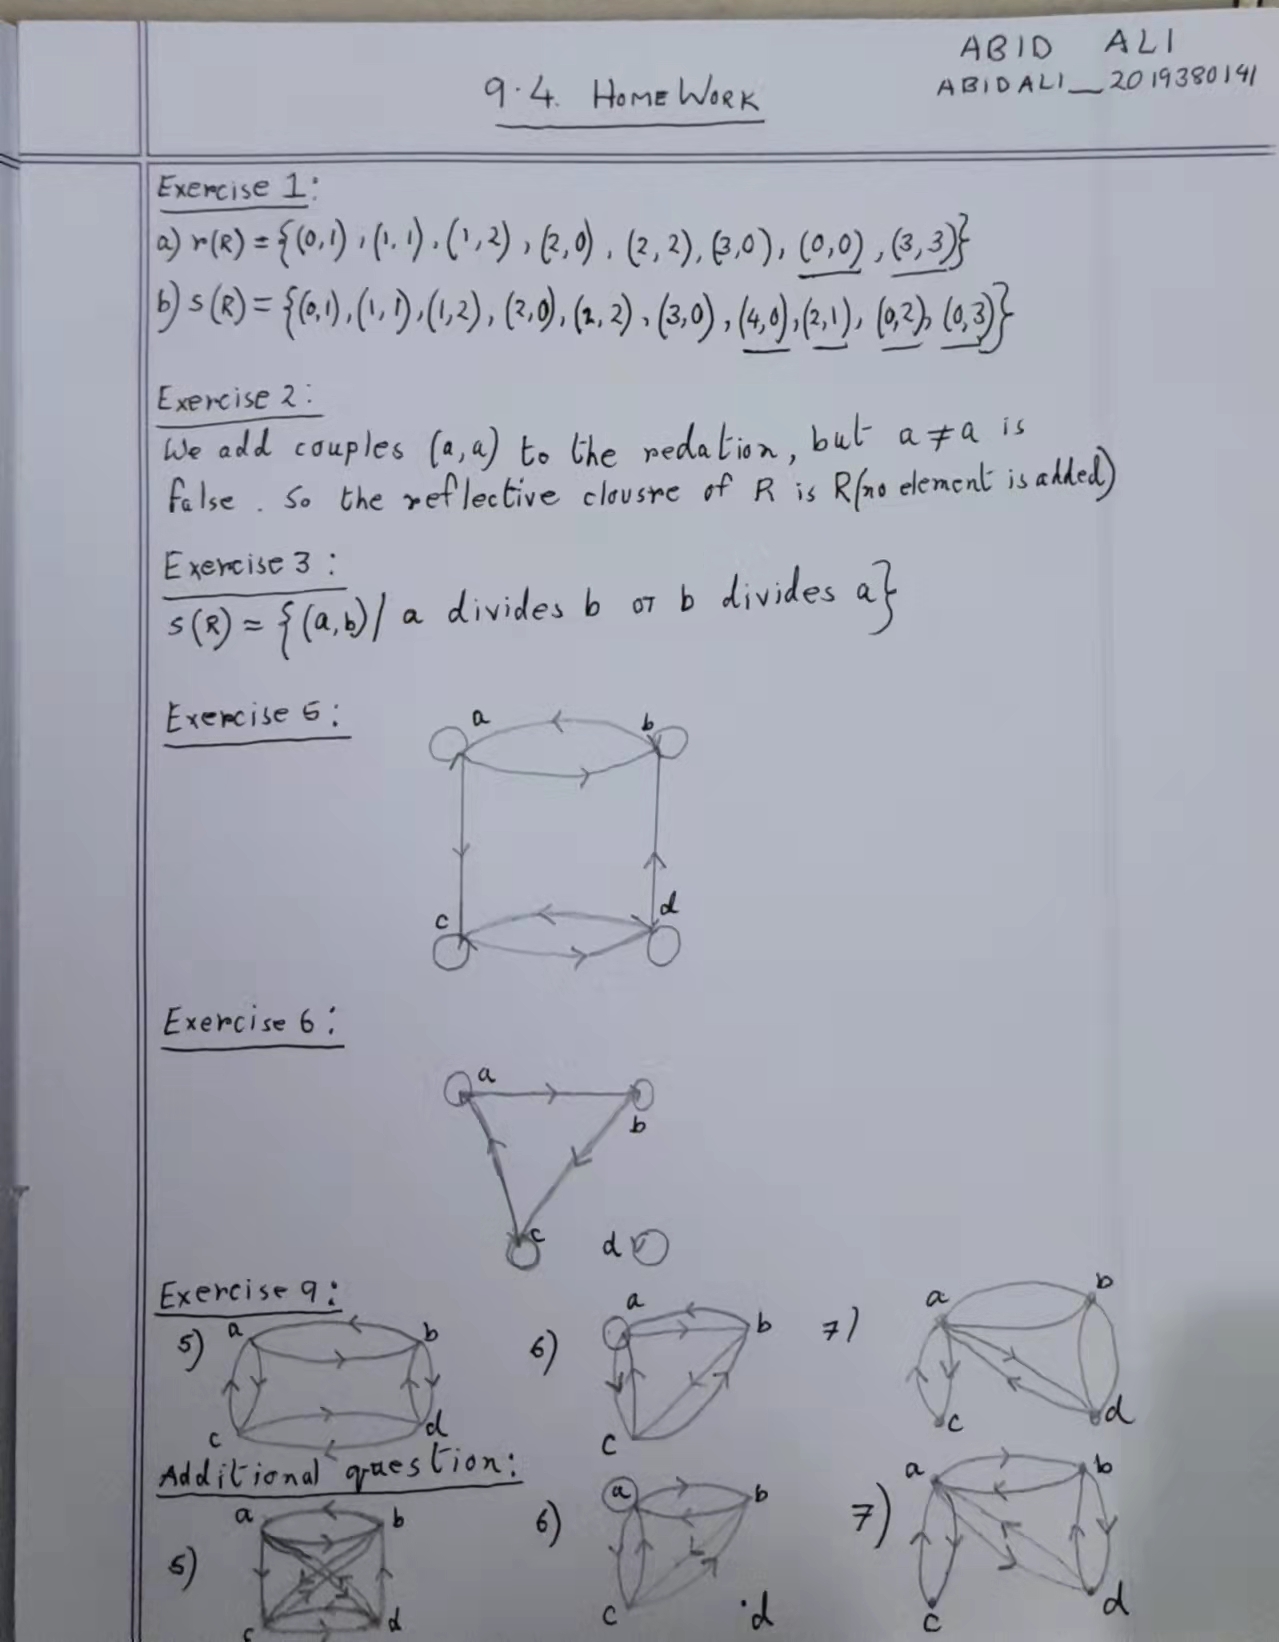 ABID ALI
9.4. HOMEWORK
ABIDALI_2019380141
Exercise 1:
a) r(R) = {(0,1), (1,1), (1,2), (2,0), (2,2), (3,0), (0,0), (3,3)}
b) s(R) = {(0,1), (1,1), (1,2), (2,0), (2,2), (3,0), (4,0), (2,1), (0,2), (0,3)}
Exercise 2:
We add couples (a,a) to the redation, but a ≠ a is
false. So the reflective clousre of R is R(no element is added)
Exercise 3:
s(R) = {(a,b)/ a divides b or b divides a}
Exercise 5:
a b
c d
Exercise 6:
a
b
c d
Exercise 9:
5) a b c d
6) a b c
7) a b c d
Additional question:
5) a b c d
6) a b c d
7) a b c d